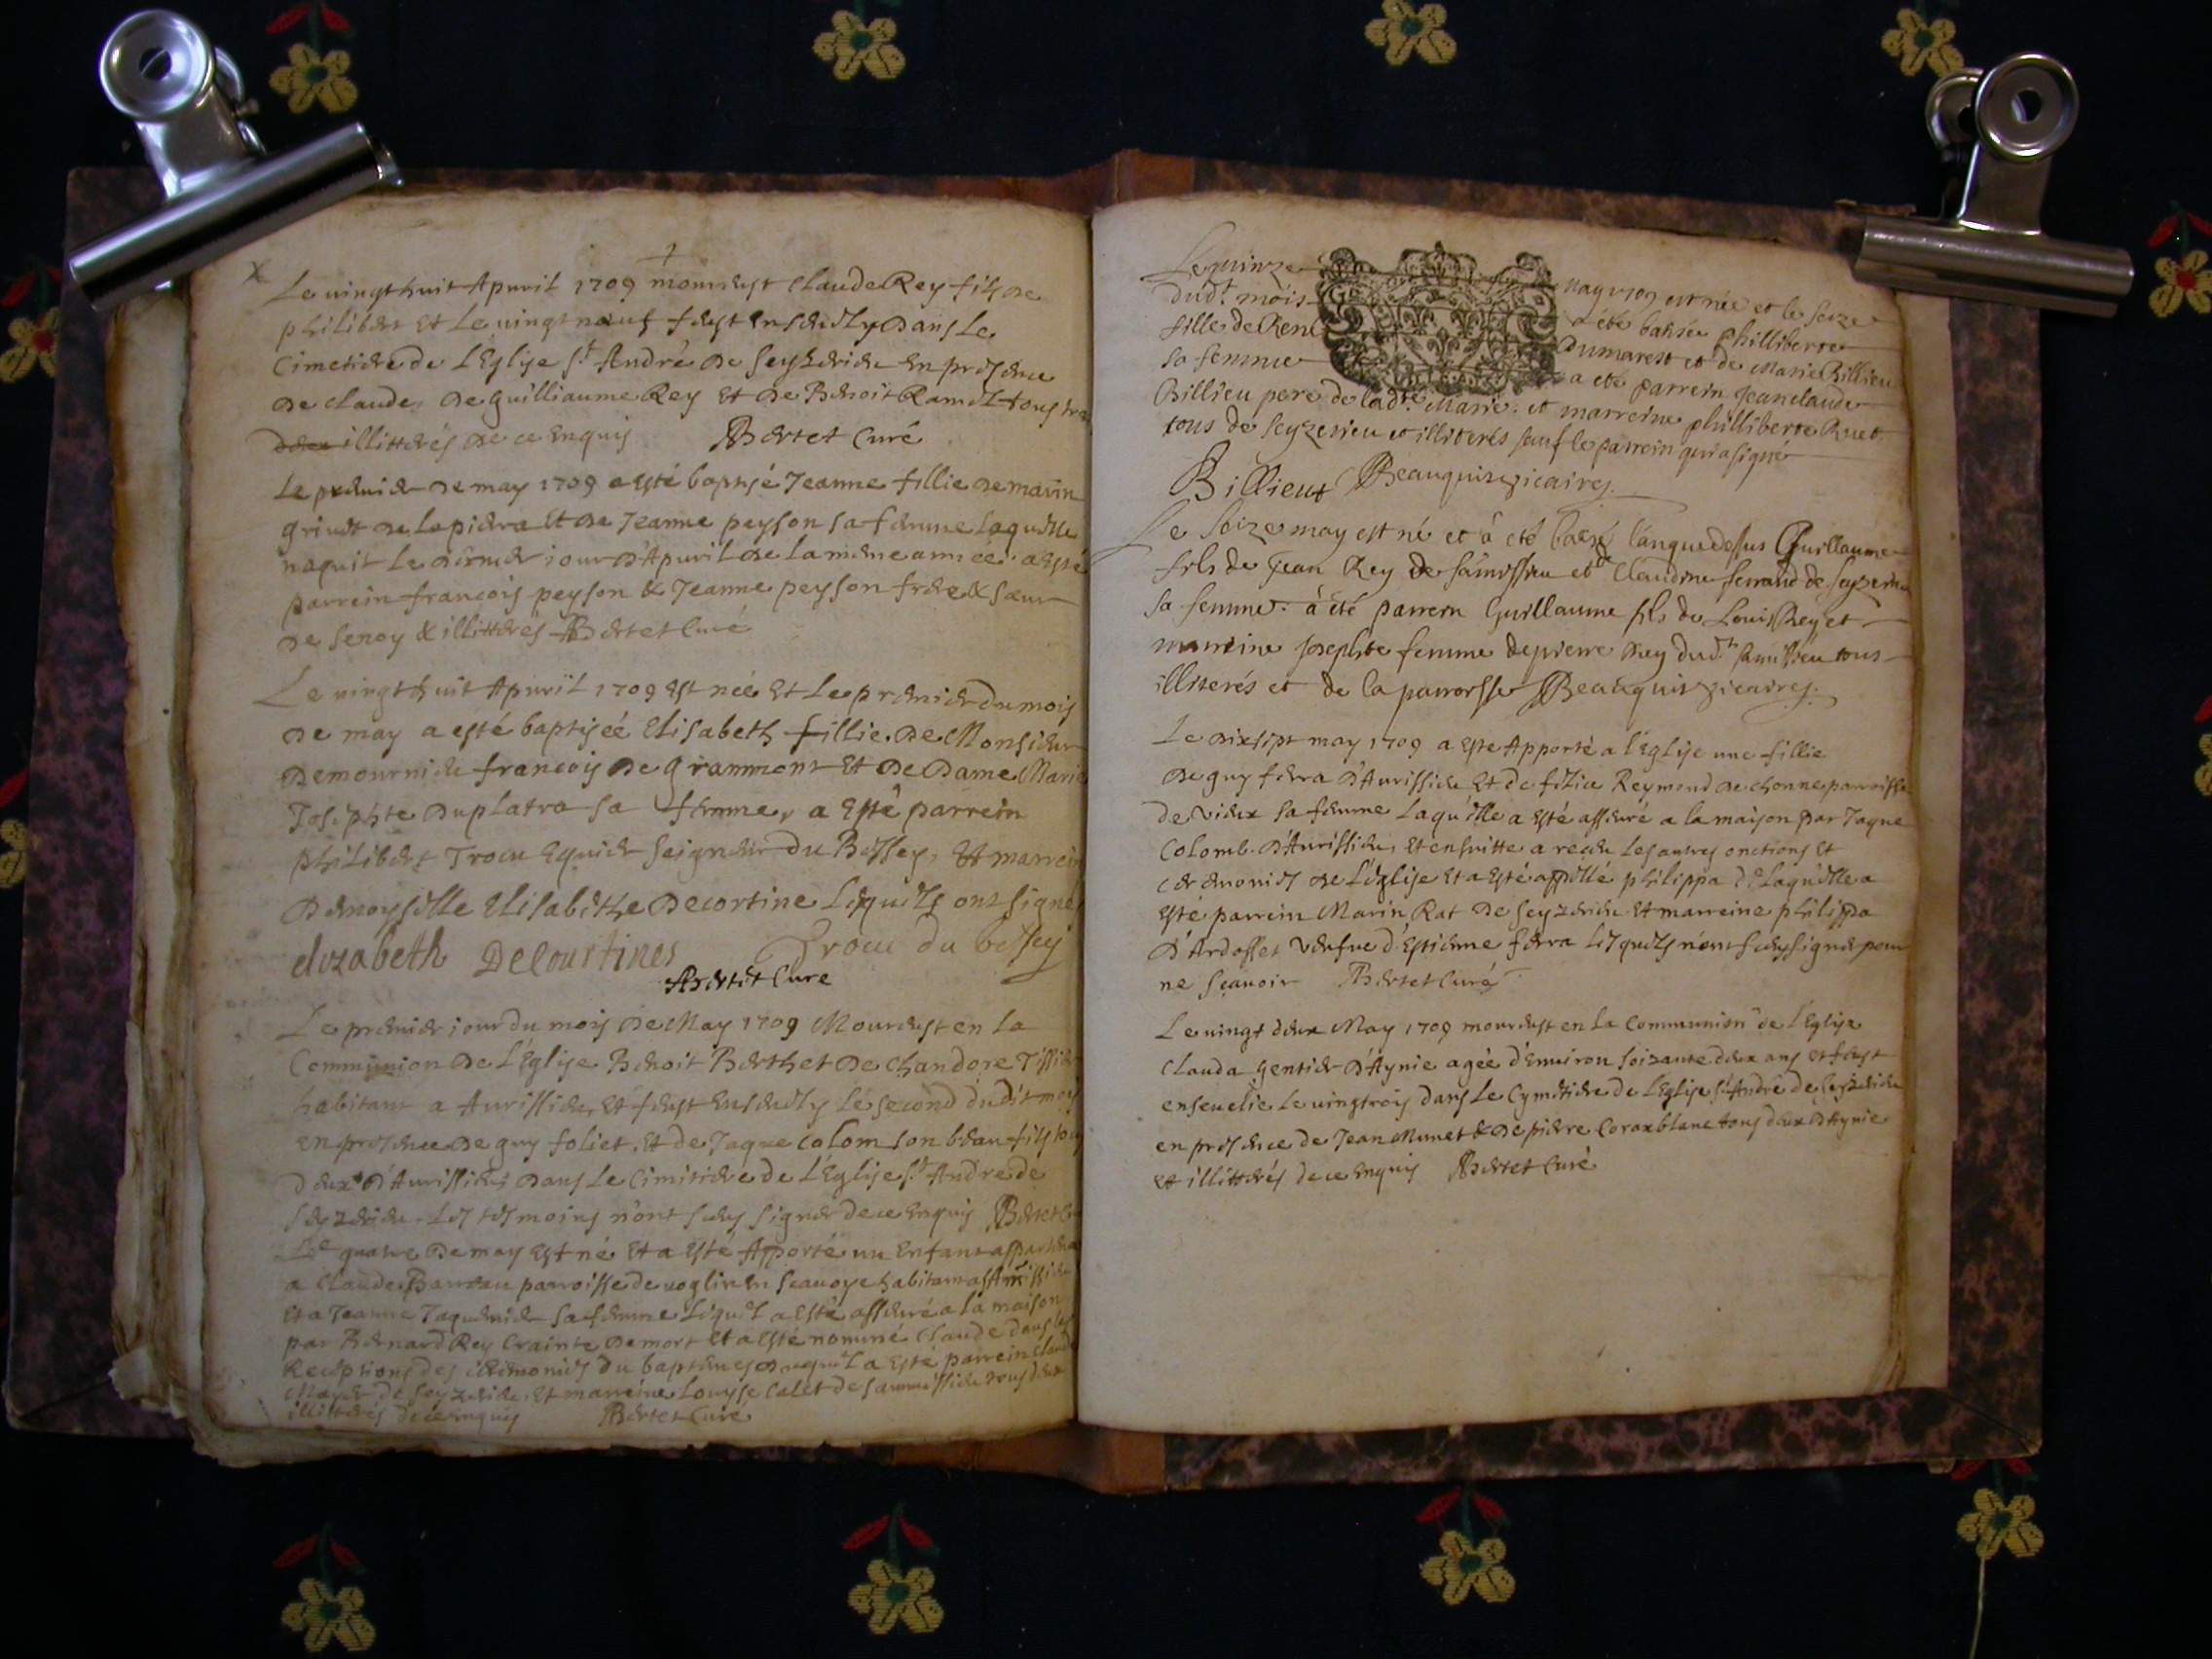 Le vingt huit Apuril 1709 mourust Claude Rey fils de
philibert et Le vingt neuf fust ensevely Dans Le
Cimetiere de L'Eglise St. André de Seyzerieu en presence
de claude, de guilliaume Rey et de Benoit Ramel tous
illitterés de ce enquis Bertet Curé
Le premier de may 1709 a esté baptisé Jeanne fillie de marin
griuet de lapierra Et de Jeanne peyson sa femme laquelle
naquit Le dernier iour d'Apuril de la mesme année. a esté
parrein francois peyson & Jeanne peyson frere & sœur
de senoy & illitterés Bertet Curé
Le vingt huit Apuril 1709 est née et Le premier du mois
de may a esté baptiseé Elisabeth fillie de Monsieur
Demournieu francois de grammont Et de Dame Marie
Josephte duplatra sa femme, a Esté parrein
philibert Trocu Equier Seigneur du Bessey, Et marreine
Demoyselle Elisabethe Decortine Lesquels ont signé
elizabeth Decourtines Trocu du bessey
Bertet Cure
Le premier iour du mois de May 1709 Mourust en la
Communion de L'Eglise Benoit Berthet de chandore
habitant a Aurissieu, et fust ensevely le second dudit mois
en presence de guy foliet, Et de Jaque colom son beau fils
deux d'Aurissieu, dans Le Cimitiere de L'Eglise St. André de
Seyzerieu. Les tesmoins n'ont sceu signer de ce enquis Bertet
Le quatre de may est né Et a esté Apporté un Enfant
a Claude parroisse de voglin en sauoye habitant
Et a Jeanne Jaquenier sa femme Lequel a esté asseuré a la maison
par Bernard Rey Crainte de mort Et a esté nommé Claude dans les
Receptions des ceremonies du baptesme duquel a esté parrein
de Seyzerieu, Et marreine Louyse Calet de sammissieu tous deux
illitterés de ce enquis Bertet Curé
Le quinze May 1709 est née et le seize
dudt. mois a été batisée philliberte
fille de René Dumarest et de Marie Billieu
sa femme a été parrein Jeanclaude
Billieu pere de ladte. Marie. et marreine philliberte Ruet
tous de Seyzerieu et illiterés sauf le parrein qui a signé
Billieux Beauquis vicaires
Le seize may est né et a été batisé l'an que dessus Guillaume
fils de Jean Rey de samissieu et de Claudine ferrand de Seyzerieu
sa femme. a été parrein Guillaume fils de Louis Rey et
marreine Josephte femme de pierre Rey dudt. samissieu tous
illiterés et de la parroisse Beauquis vicaires.
Le dixsept may 1709 a esté Apporté a l'Eglise une fillie
de guy ferra d'Aurissieu Et de felice Reymond de chonne parroisse
de vieux sa femme Laquelle a esté asseuré a la maison par Jaque
Colomb d'Aurissieu, Et ensuitte a receu Les autres onctions Et
ceremonies de L'Eglise Et a Esté appellé philippa de Laquelle a
Esté parrein Marin Rat de Seyzerieu Et marreine philippa
D'Ardosset veufue d'Estienne ferra Lesquels n'ont sceu signer pour
ne sçauoir Bertet Curé
Le vingt deux May 1709 mourust en La Communion de L'Eglise
Clauda gentier d'Aynie agée d'enuiron soizante deux ans et fust
enseuelie Le vingtrois dans Le Cymetiere de L'Eglise St. André de Seyzerieu
en presence de Jean Munet & de pierre Coraxblanc tous deux d'Aynie
Et illitterés de ce enquis Bertet Curé